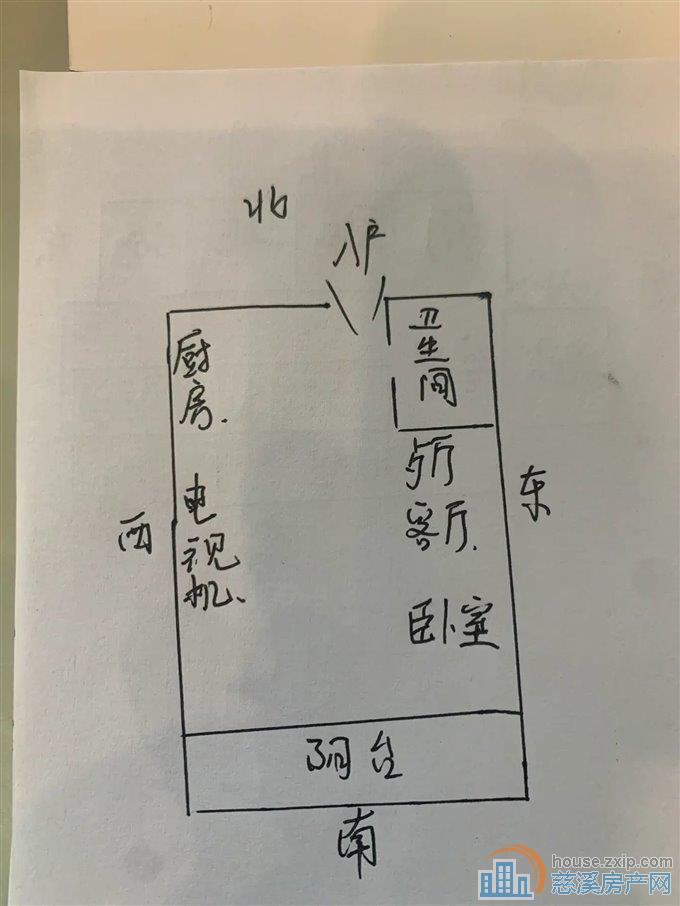 北
入户
厨房.
卫生间
西
电视机.
餐厅
客厅.
东
卧室
阳台
南
house.zxip.com
慈溪房产网